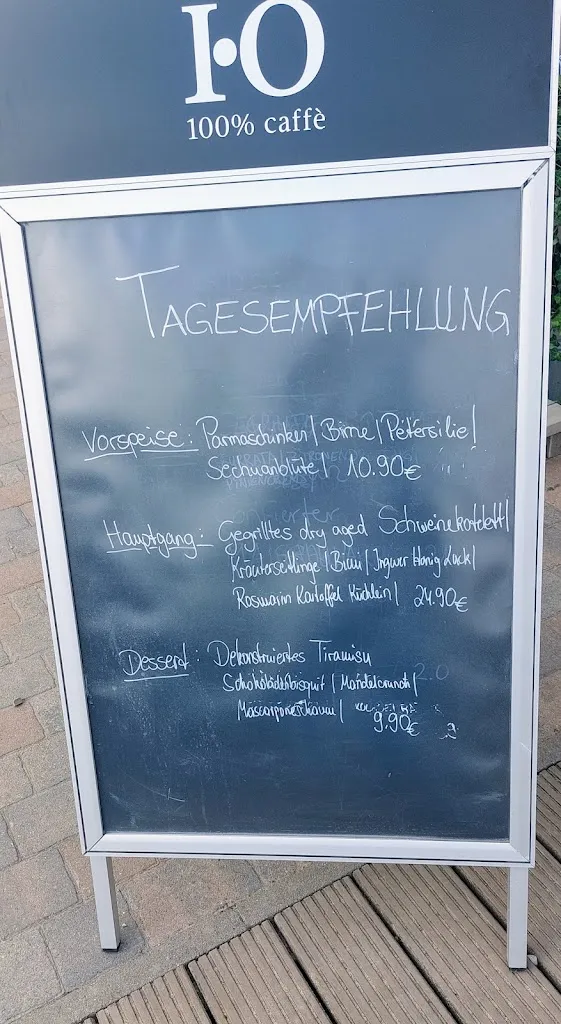 I·O
100% caffè
TAGESEMPFEHLUNG
Vorspeise: Parmaschinken | Birne | Petersilie |
Sechuanblüte | 10.90€
Hauptgang: Gegrilltes dry aged Schweinekotelett |
Kräuterseitlinge | Bimi | Ingwer Honig Lack |
Rosmarin Kartoffel Küchlein | 24.90€
Dessert: Dekonstruiertes Tiramisu
Mandelcrunch |
9.90€